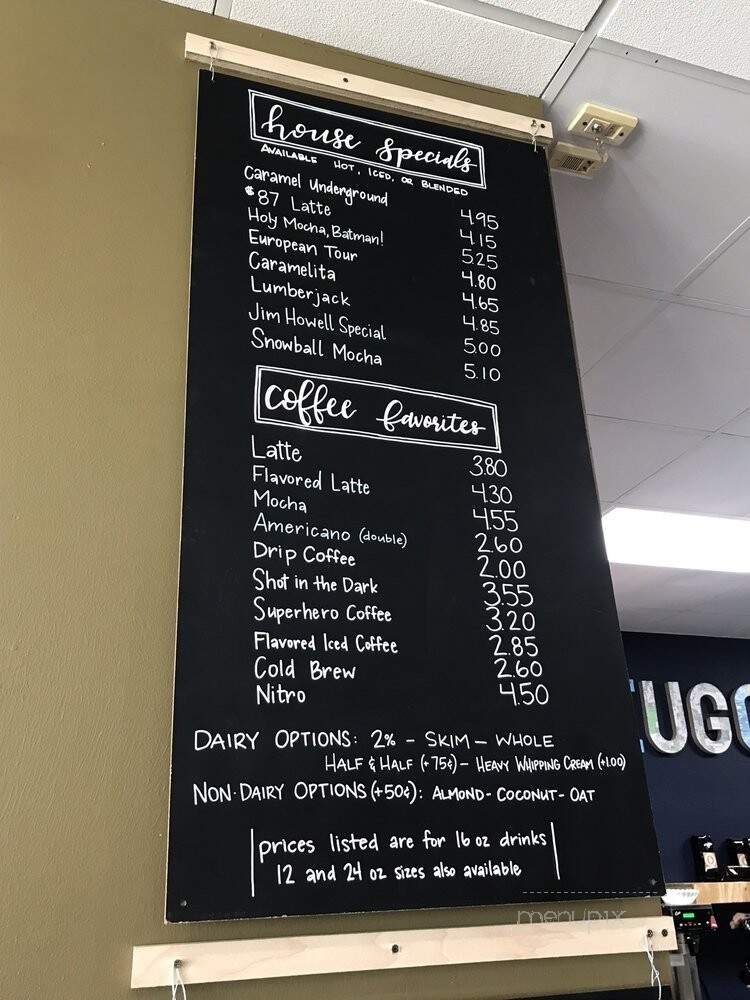 house specials
AVAILABLE HOT, ICED, OR BLENDED
Caramel Underground 4.95
$87 Latte 4.15
Holy Mocha, Batman! 5.25
European Tour 4.80
Caramelita 4.65
Lumberjack 4.85
Jim Howell Special 5.00
Snowball Mocha 5.10
coffee favorites
Latte 3.80
Flavored Latte 4.30
Mocha 4.55
Americano (double) 2.60
Drip Coffee 2.00
Shot in the Dark 3.55
Superhero Coffee 3.20
Flavored Iced Coffee 2.85
Cold Brew 2.60
Nitro 4.50
DAIRY OPTIONS: 2% - SKIM - WHOLE
HALF & HALF (+75¢) - HEAVY WHIPPING CREAM (+1.00)
NON-DAIRY OPTIONS (+50¢): ALMOND - COCONUT - OAT
prices listed are for 16 oz drinks
12 and 24 oz sizes also available
UGO
menupix